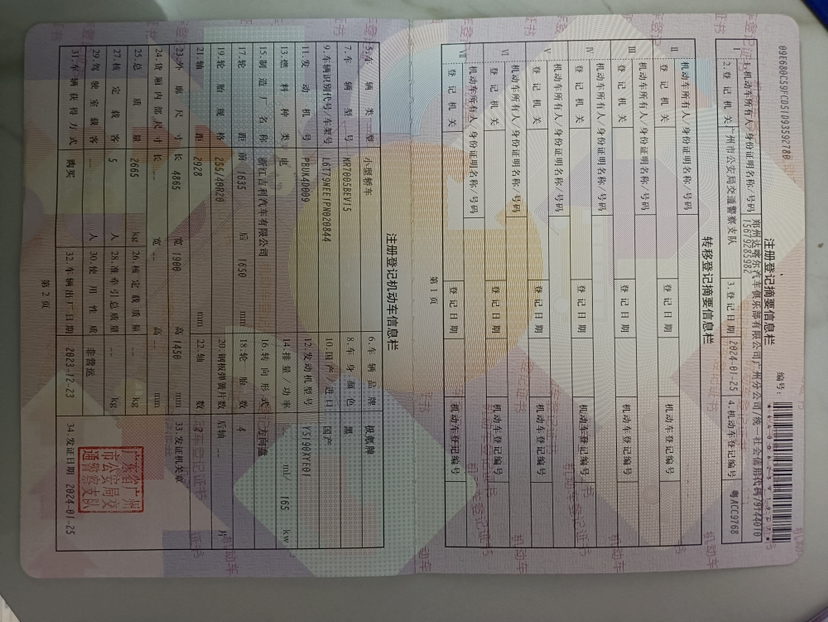 09E680C59FC051D93592780
编号:
注册登记摘要信息栏
1.机动车所有人/身份证明名称/号码
2.登记机关 广州市公安局交通警察支队 3.登记日期 2024-01-25 4.机动车登记编号 粤ACC9768
转移登记摘要信息栏
II 机动车所有人/身份证明名称/号码
登记机关 登记日期 机动车登记编号
III 机动车所有人/身份证明名称/号码
登记机关 登记日期 机动车登记编号
IV 机动车所有人/身份证明名称/号码
登记机关 登记日期 机动车登记编号
V 机动车所有人/身份证明名称/号码
登记机关 登记日期 机动车登记编号
VI 机动车所有人/身份证明名称/号码
登记机关 登记日期 机动车登记编号
VII 机动车所有人/身份证明名称/号码
登记机关 登记日期 机动车登记编号
第1页
注册登记机动车信息栏
5.车辆类型 小型轿车 6.车辆品牌 极氪牌
7.车辆型号 MR7005BEV15 8.车身颜色 黑
9.车辆识别代号/车架号 L6T79NEE1PN020844 10.国产/进口 国产
11.发动机号 PBUK40009 12.发动机型号 YS190XYE01
13.燃料种类 电 14.排量/功率 ml/ 165 kw
15.制造厂名称 浙江吉利汽车有限公司 16.转向形式 方向盘
17.轮距 前 1635 后 1650 mm 18.轮胎数 4
19.轮胎规格 255/40R20 20.钢板弹簧片数 后轴 -- 片
21.轴距 2928 mm 22.轴数 2
23.外廓尺寸 长 4865 宽 1900 高 1450 mm 33.发证机关章
24.货厢内部尺寸 长 -- 宽 -- 高 -- mm
25.总质量 2665 kg 26.核定载质量 -- kg
27.核定载客 5 人 28.准牵引总质量 -- kg
29.驾驶室载客 -- 人 30.使用性质 非营运
31.车辆获得方式 购买 32.车辆出厂日期 2023-12-23 34.发证日期 2024-01-25
广东省广州
市公安局交
通警察支队
第2页